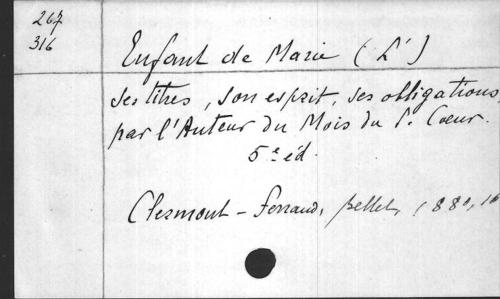 267
316
Enfant de Marie (L')
ses titres, son esprit, ses obligations
par l'Auteur du Mois du S. Cœur.
5e éd.
Clermont-Ferrand, pellet, 1880,